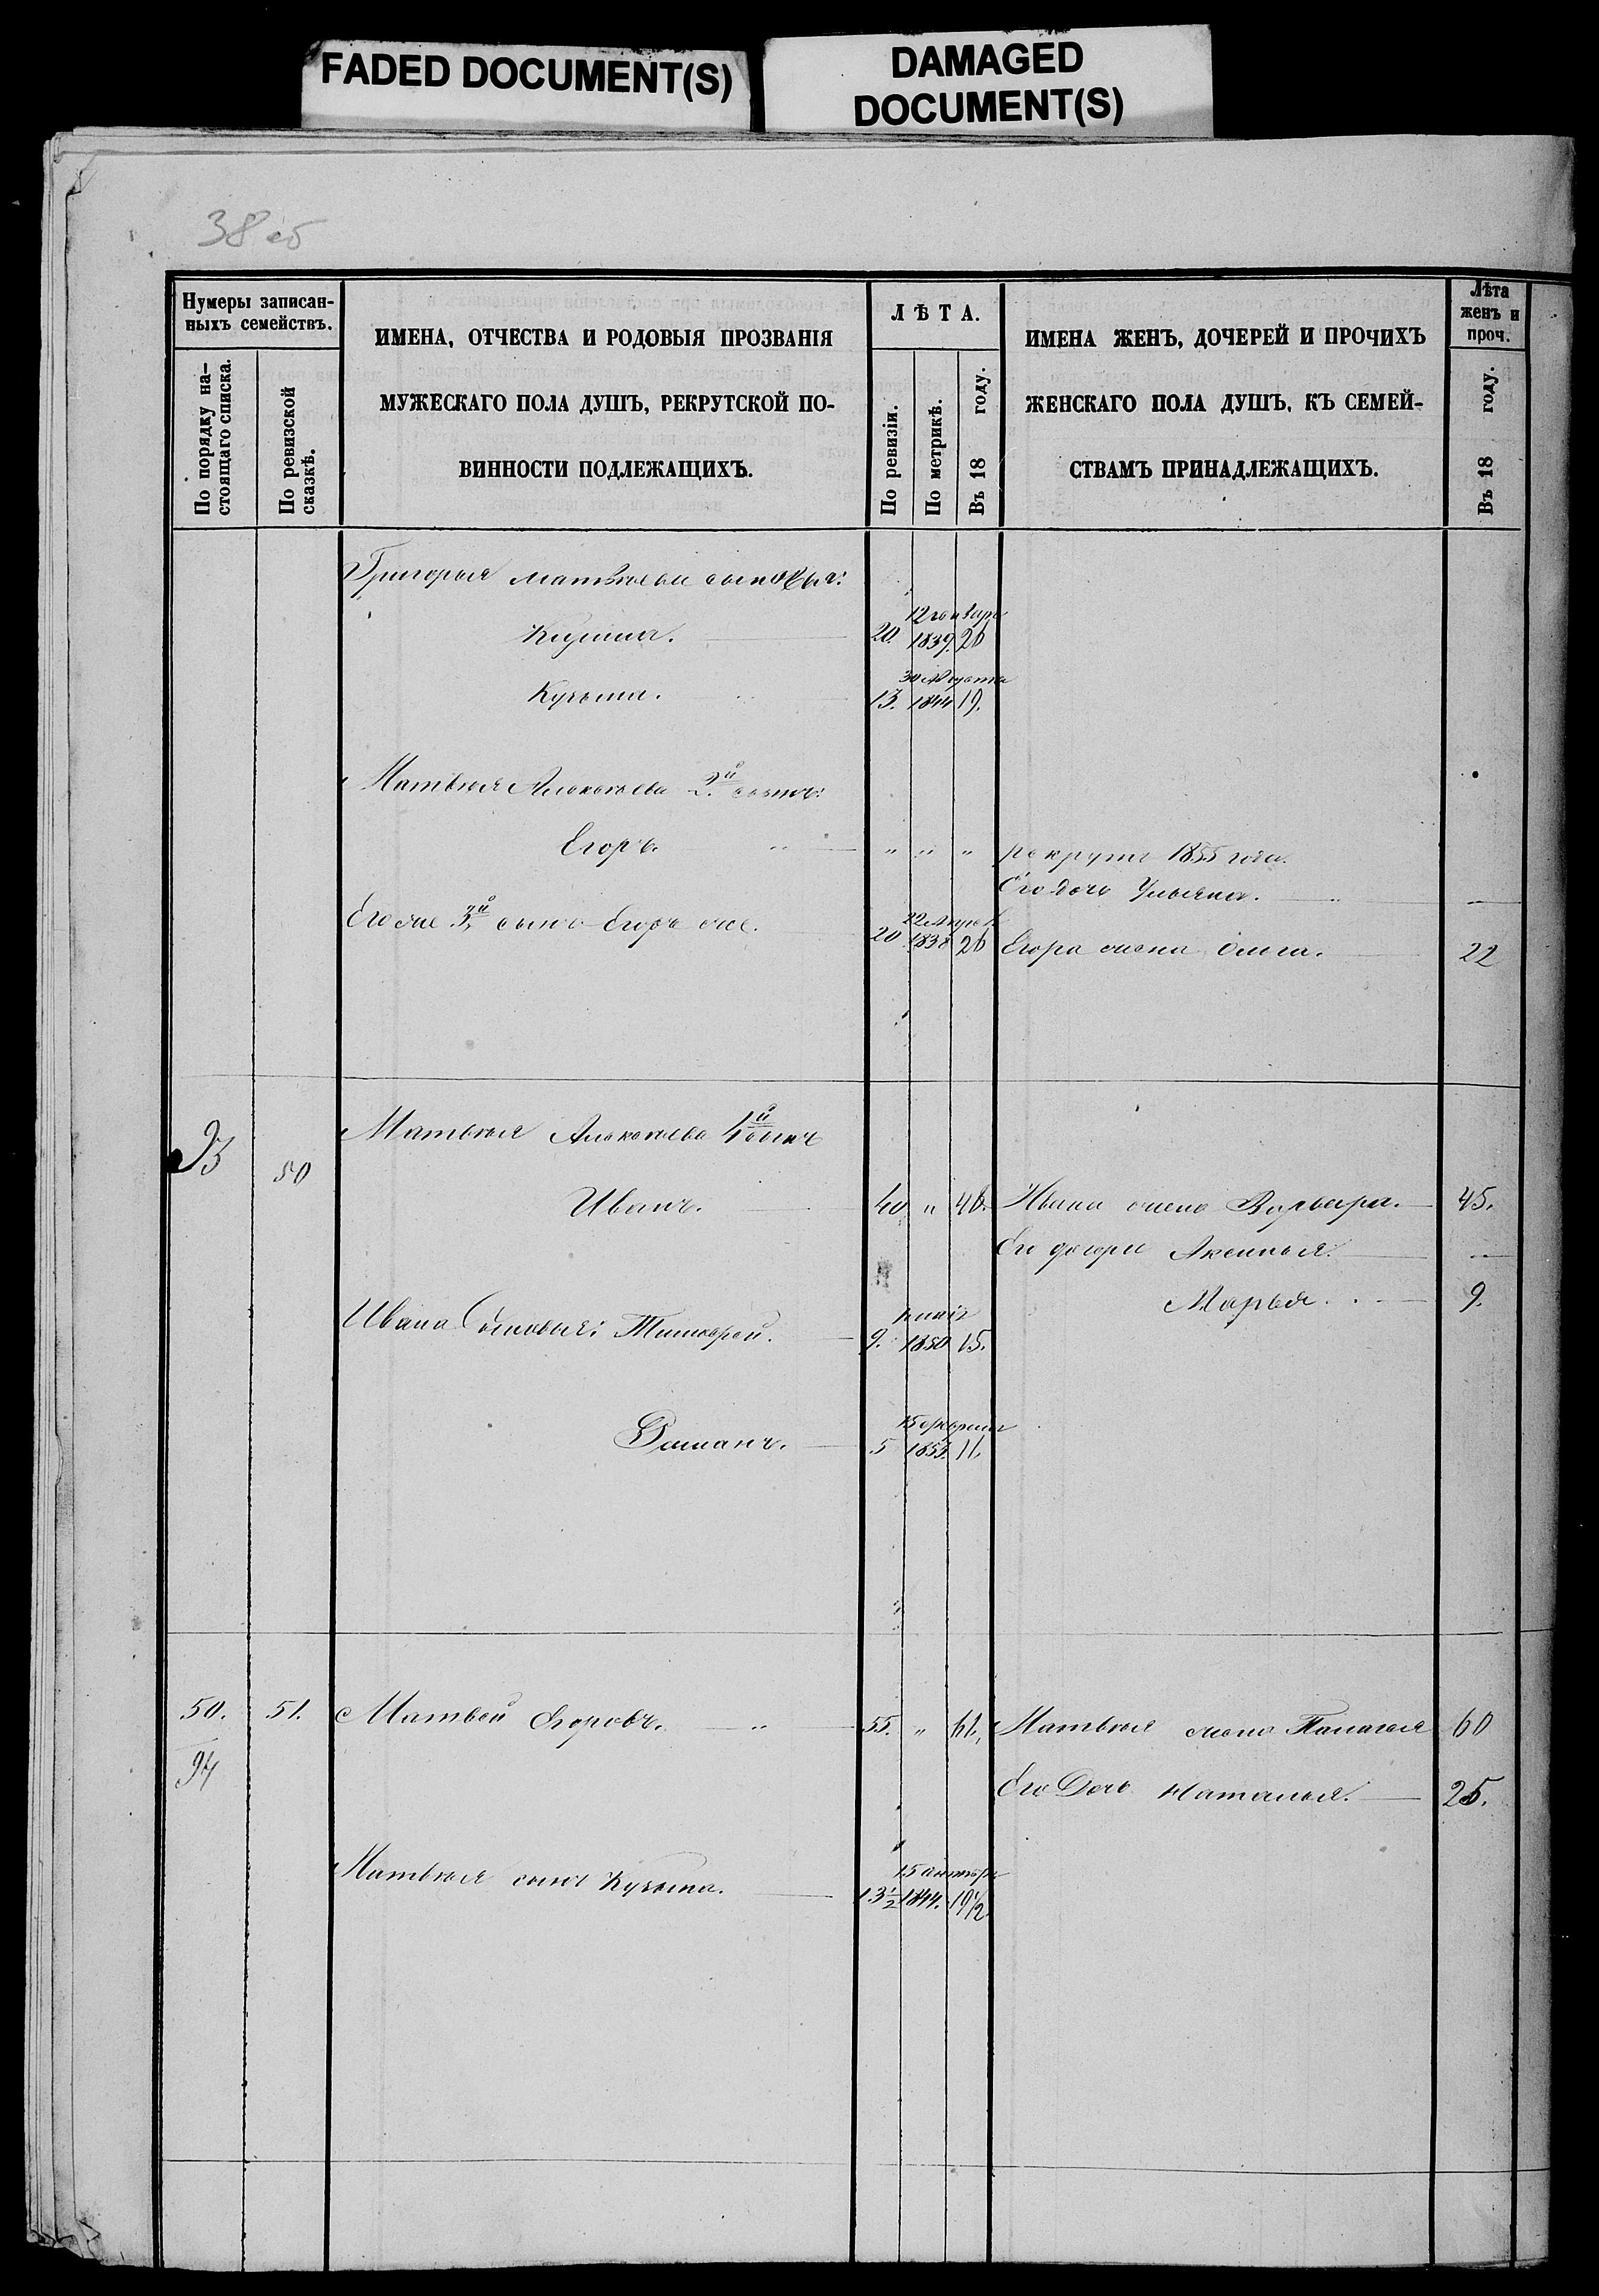 FADED DOCUMENT(S)
DAMAGED
DOCUMENT(S)
38 об
Нумеры записан-
ныхъ семействъ.
По порядку на-
стоящаго списка.
По ревизской
сказкѣ.
ИМЕНА, ОТЧЕСТВА И РОДОВЫЯ ПРОЗВАНІЯ
МУЖЕСКАГО ПОЛА ДУШЪ, РЕКРУТСКОЙ ПО-
ВИННОСТИ ПОДЛЕЖАЩИХЪ.
ЛѢТА.
По ревизіи.
По метрикѣ.
Въ 18 году.
ИМЕНА ЖЕНЪ, ДОЧЕРЕЙ И ПРОЧИХЪ
ЖЕНСКАГО ПОЛА ДУШЪ, КЪ СЕМЕЙ-
СТВАМЪ ПРИНАДЛЕЖАЩИХЪ.
Лѣта
женъ и
проч.
Въ 18 году.
Григорья Матвѣева сыновья:
12 генваря
20. 1839. 26
30 Августа
Кузьма. 13. 1844 19.
Матвѣя Алексѣева 2й сынъ:
Егоръ. " " " рекрутъ 1855 года.
Его дочь Ульяна. —
Его же 3й сынъ Егоръ же. 20 22 Апрѣл 1838 26 Егора жена Ольга. 22
93 50 Матвѣя Алексѣева 4й сынъ
Иванъ. 40 " 46. Ивана жена Варвара. 45.
Его дочери Аксинья. —
Марья. 9.
Ивана Сыновья: Тимофей. 9. 1850 15.
Романъ. 5 1853. 11
50. 51. Матвей Егоровъ. " 55. " 61. Матвѣя жена Палагея 60
94
Его Дочь Наталья. 25.
15 октября
Матвѣя сынъ Кузьма. 13½ 1844. 19½